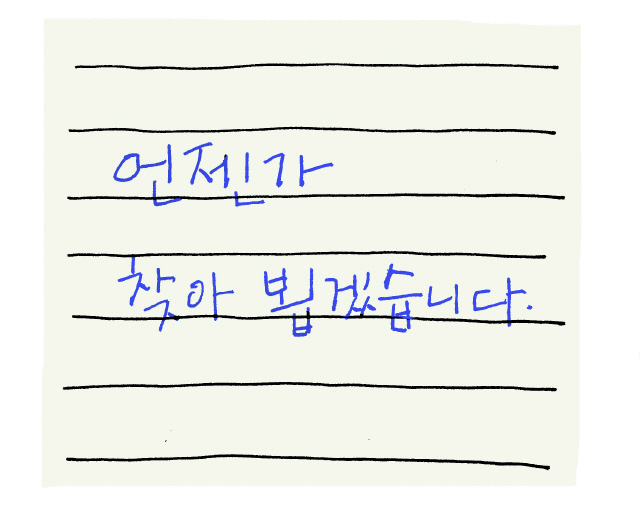 언젠가
찾아 뵙겠습니다.